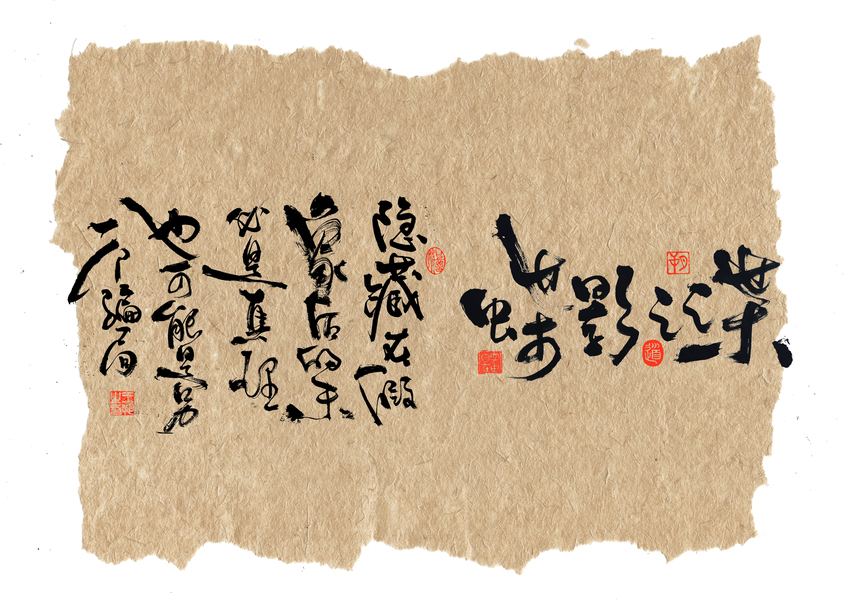 蝶影之谍
隐藏在假
象后的未
必是真理
也可能是另
一个骗局